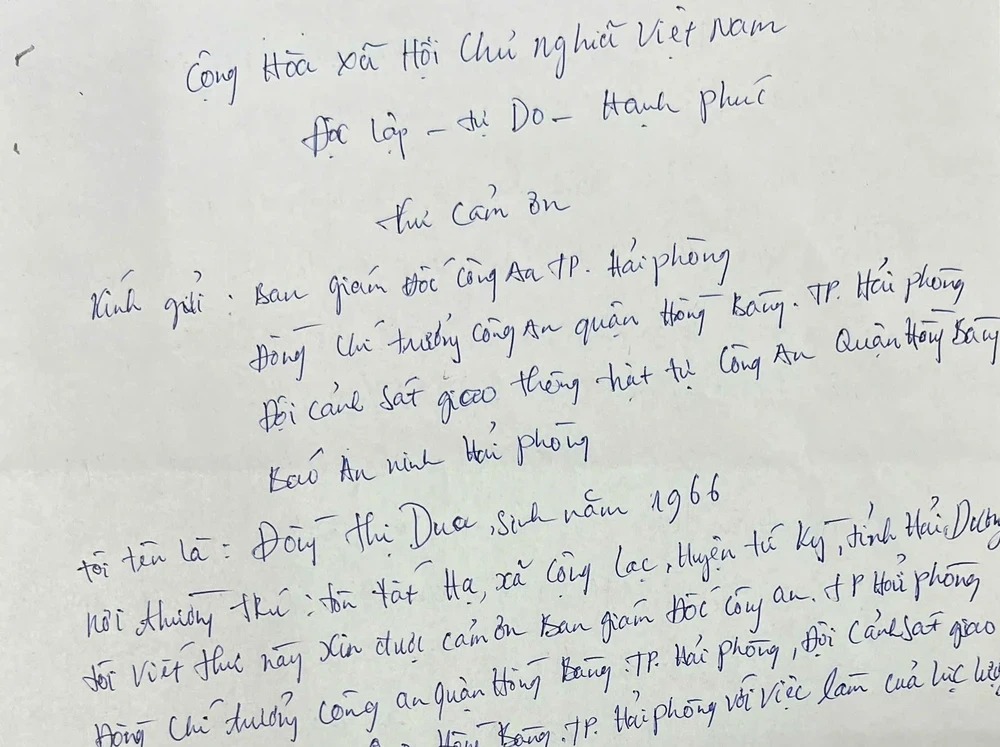 Cộng Hòa xã Hội Chủ nghĩa Việt Nam
Độc lập - tự Do - Hạnh phúc
thư cảm ơn
Kính gửi : Ban giám đốc Công An TP. Hải phòng
Đồng chí trưởng Công An quận Hồng Bàng. TP. Hải phòng
Đội cảnh sát giao thông trật tự Công An Quận Hồng Bàng
Báo An ninh Hải phòng
tôi tên là : Đồng Thị Dua, sinh năm 1966
nơi thường trú : thôn Hạ, xã Cộng Lạc, Huyện tứ Kỳ, tỉnh Hải Dương
tôi viết thư này xin được cảm ơn Ban giám đốc công an. TP Hải phòng
Đồng chí trưởng công an quận Hồng Bàng. TP. Hải phòng, Đội cảnh sát giao
Hồng Bàng. TP. Hải phòng với việc làm của lực